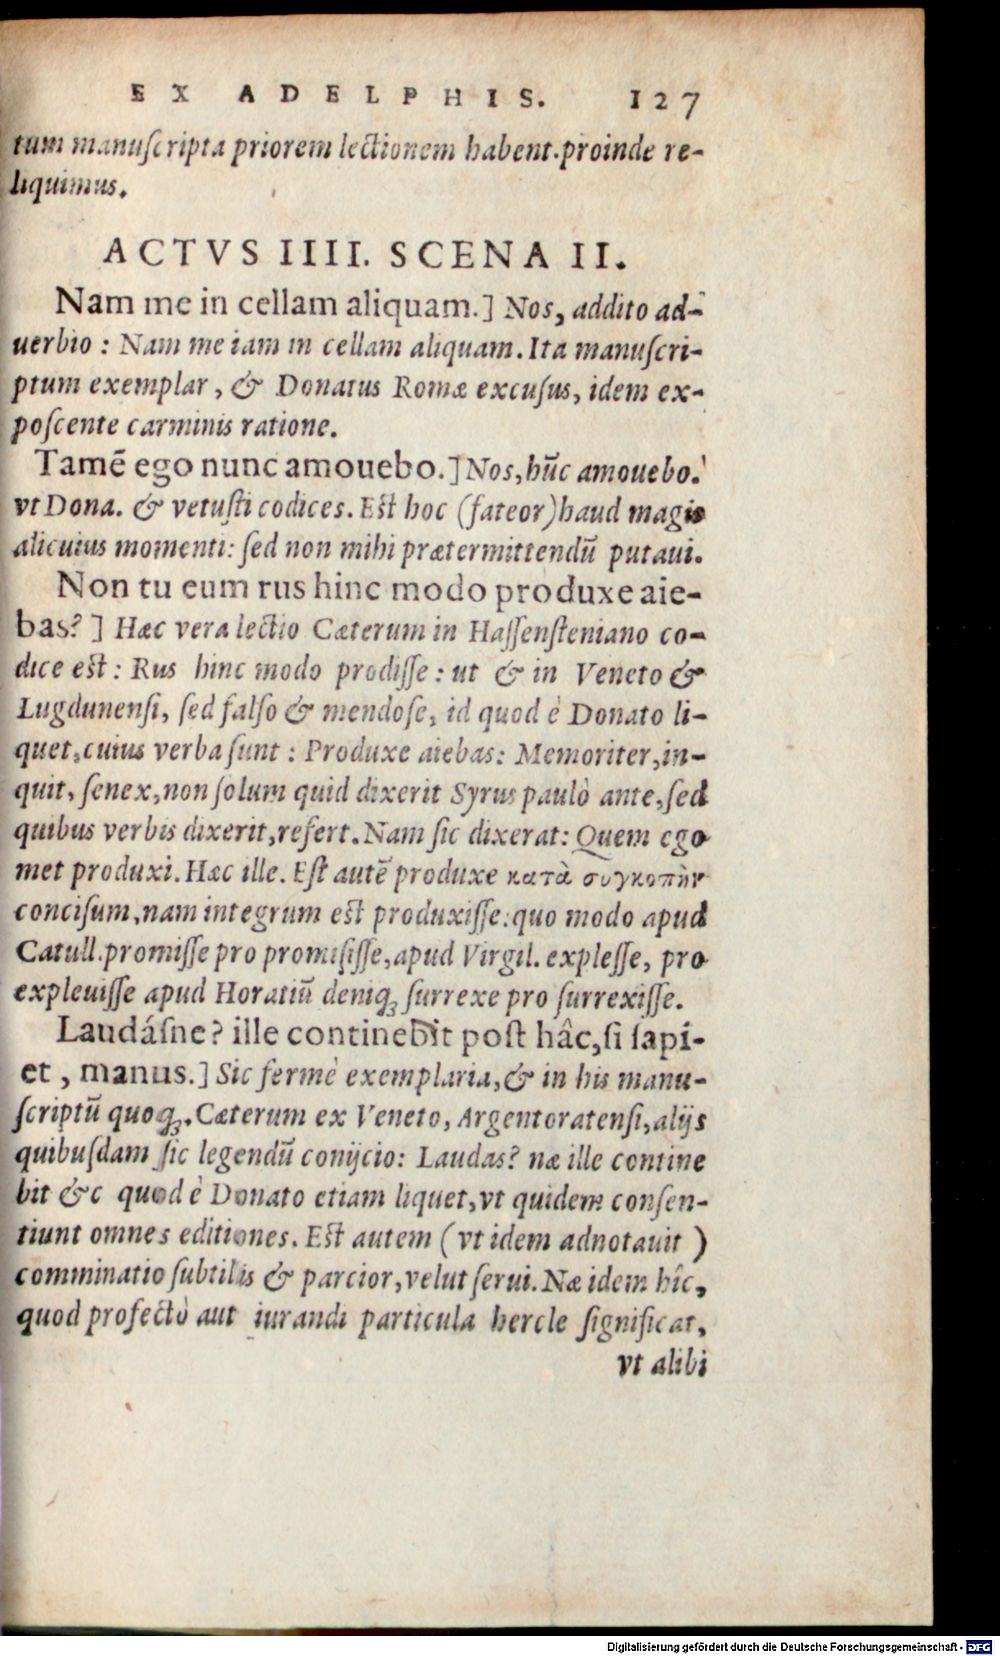 EX ADELPHIS. 127
tum manuſcripta priorem lectionem habent. proinde re-
liquimus.
ACTVS IIII. SCENA II.
Nam me in cellam aliquam.] Nos, addito ad-
uerbio : Nam me iam in cellam aliquam. Ita manuſcri-
ptum exemplar, & Donatus Romæ excuſus, idem ex-
poſcente carminis ratione.
Tamē ego nunc amouebo.] Nos, hūc amouebo.
vt Dona. & vetuſti codices. Eſt hoc (fateor) haud magis
alicuius momenti: ſed non mihi prætermittendū putaui.
Non tu eum rus hinc modo produxe aie-
bas? ] Hæc vera lectio Cæterum in Haſſenſteniano co-
dice eſt : Rus hinc modo prodiſſe : ut & in Veneto &
Lugdunenſi, ſed falſo & mendoſe, id quod è Donato li-
quet, cuius verba ſunt : Produxe aiebas: Memoriter, in-
quit, ſenex, non ſolum quid dixerit Syrus paulò ante, ſed
quibus verbis dixerit, refert. Nam ſic dixerat: Quem ego
met produxi. Hæc ille. Eſt autē produxe κατὰ συγκοπὴν
conciſum, nam integrum eſt produxiſſe: quo modo apud
Catull. promiſſe pro promiſiſſe, apud Virgil. expleſſe, pro
expleuiſſe apud Horatiū deniqꝫ ſurrexe pro ſurrexiſſe.
Laudáſne? ille continebit poſt hâc, ſi ſapi-
et, manus.] Sic fermè exemplaria, & in his manu-
ſcriptū quoqꝫ. Cæterum ex Veneto, Argentoratenſi, alijs
quibuſdam ſic legendū conijcio: Laudas? næ ille contine
bit &c quod è Donato etiam liquet, vt quidem conſen-
tiunt omnes editiones. Eſt autem ( vt idem adnotauit )
comminatio ſubtilis & parcior, velut ſerui. Næ idem hîc,
quod profectò aut iurandi particula hercle ſignificat,
vt alibi
Digitalisierung gefördert durch die Deutsche Forschungsgemeinschaft - DFG